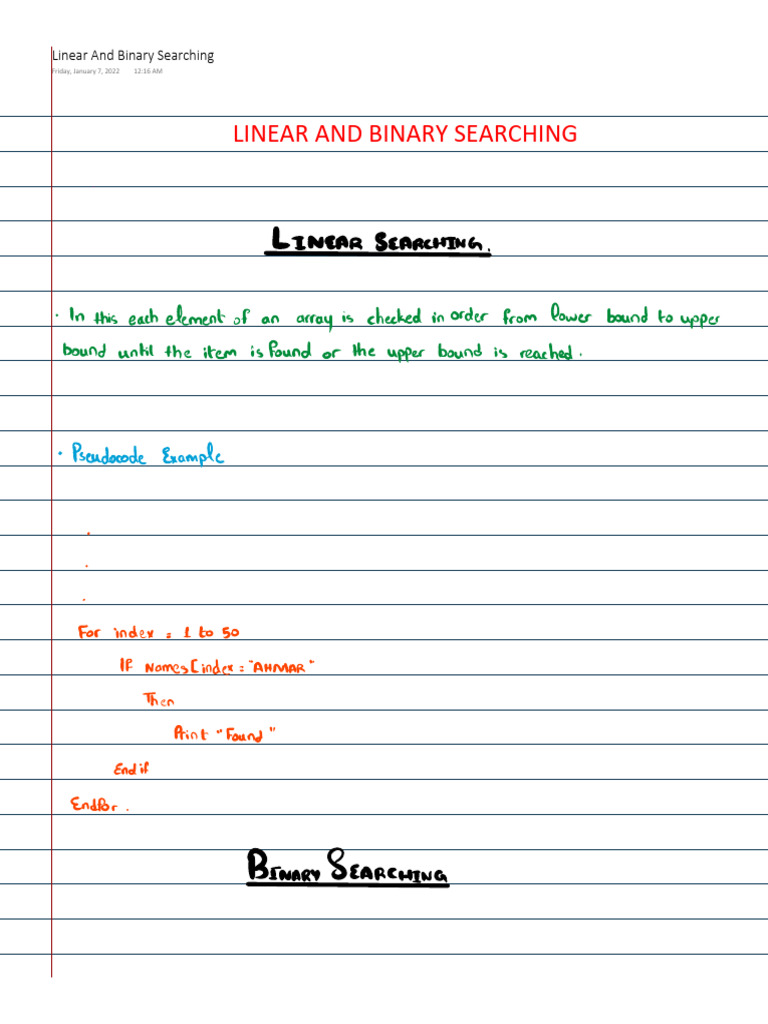 Linear And Binary Searching
Friday, January 7, 2022 12:16 AM
LINEAR AND BINARY SEARCHING
LINEAR SEARCHING.
· In this each element of an array is checked in order from lower bound to upper
bound until the item is found or the upper bound is reached.
· Pseudocode Example
.
.
.
For index = 1 to 50
If Names[index = "AHMAR"
Then
Print "Found"
End if
Endfor.
BINARY SEARCHING